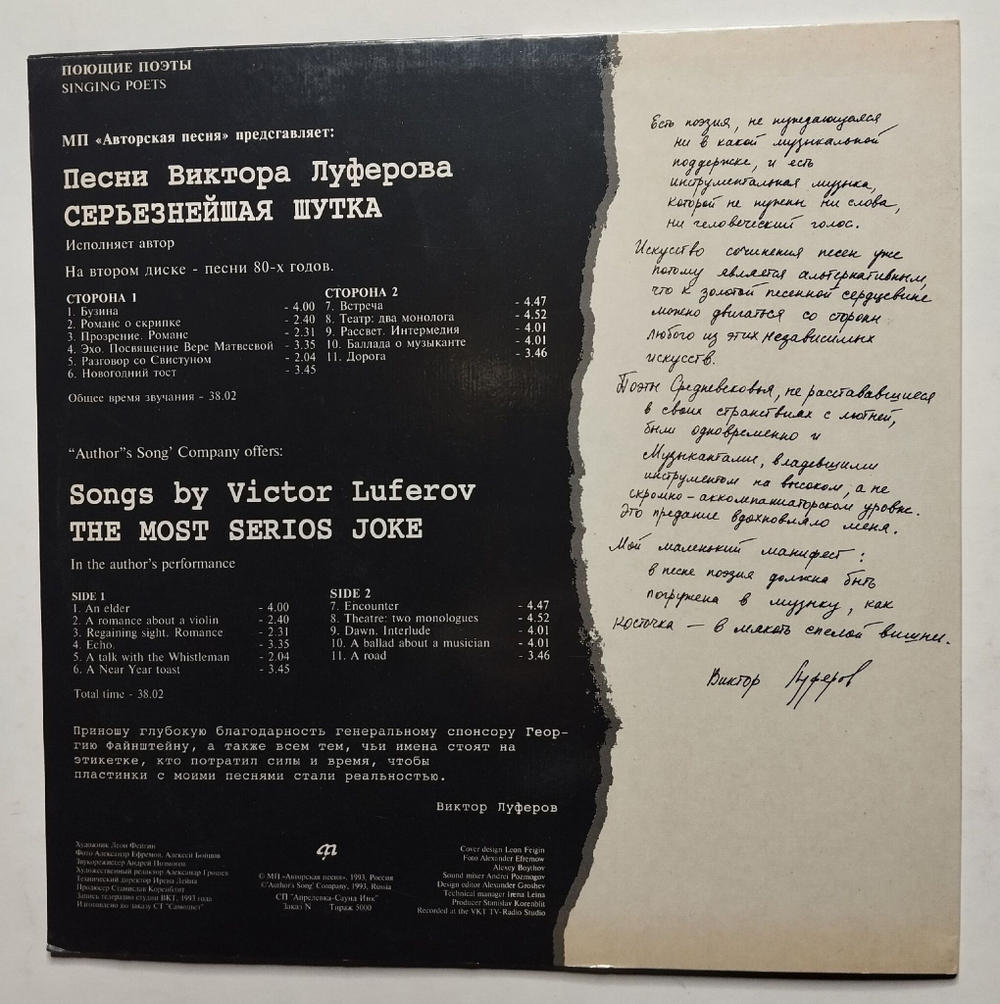 ПОЮЩИЕ ПОЭТЫ
SINGING POETS
МП «Авторская песня» представляет:
Песни Виктора Луферова
СЕРЬЕЗНЕЙШАЯ ШУТКА
Исполняет автор
На втором диске - песни 80-х годов.
СТОРОНА 1
1. Бузина - 4.00
2. Романс о скрипке - 2.40
3. Прозрение. Романс - 2.31
4. Эхо. Посвящение Вере Матвеевой - 3.35
5. Разговор со Свистуном - 2.04
6. Новогодний тост - 3.45
СТОРОНА 2
7. Встреча - 4.47
8. Театр: два монолога - 4.52
9. Рассвет. Интермедия - 4.01
10. Баллада о музыканте - 4.01
11. Дорога - 3.46
Общее время звучания - 38.02
“Author”s Song’ Company offers:
Songs by Victor Luferov
THE MOST SERIOS JOKE
In the author's performance
SIDE 1
1. An elder - 4.00
2. A romance about a violin - 2.40
3. Regaining sight. Romance - 2.31
4. Echo. - 3.35
5. A talk with the Whistleman - 2.04
6. A Near Year toast - 3.45
SIDE 2
7. Encounter - 4.47
8. Theatre: two monologues - 4.52
9. Dawn. Interlude - 4.01
10. A ballad about a musician - 4.01
11. A road - 3.46
Total time - 38.02
Приношу глубокую благодарность генеральному спонсору Геор-
гию Файнштейну, а также всем тем, чьи имена стоят на
этикетке, кто потратил силы и время, чтобы
пластинки с моими песнями стали реальностью.
Виктор Луферов
Художник Леон Фейгин
Фото Александр Ефремов, Алексей Бойцов
Звукорежиссер Андрей Позмогов
Художественный редактор Александр Грошев
Технический директор Ирена Лейна
Продюсер Станислав Коренблит
Запись телерадио студии ВКТ, 1993 года
Изготовлено по заказу СТ "Самоцвет"
© МП «Авторская песня», 1993, Россия
©'Author's Song' Company, 1993, Russia
СП "Апрелевка-Саунд Инк"
Заказ N Тираж 5000
Cover design Leon Feigin
Foto Alexander Efremow
Alexey Boythov
Sound mixer Andrei Pozmogov
Design editor Alexander Groshev
Technical manager Irena Leina
Producer Stanislav Korenblit
Recorded at the VKT TV-Radio Studio
Есть поэзия, не нуждающаяся
ни в какой музыкальной
поддержке, и есть
инструментальная музыка,
которой не нужны ни слова,
ни человеческий голос.
Искусство сочинения песен уже
потому является альтернативным,
что к золотой песенной сердцевине
можно двигаться со стороны
любого из этих независимых
искусств.
Поэты Средневековья, не расстававшиеся
в своих странствиях с лютней,
были одновременно и
музыкантами, владевшими
инструментом на высоком, а не
скромно-аккомпаниаторском уровне.
Это предание вдохновляло меня.
Мой маленький манифест:
в песне поэзия должна быть
погружена в музыку, как
косточка — в мякоть спелой вишни.
Виктор Луферов